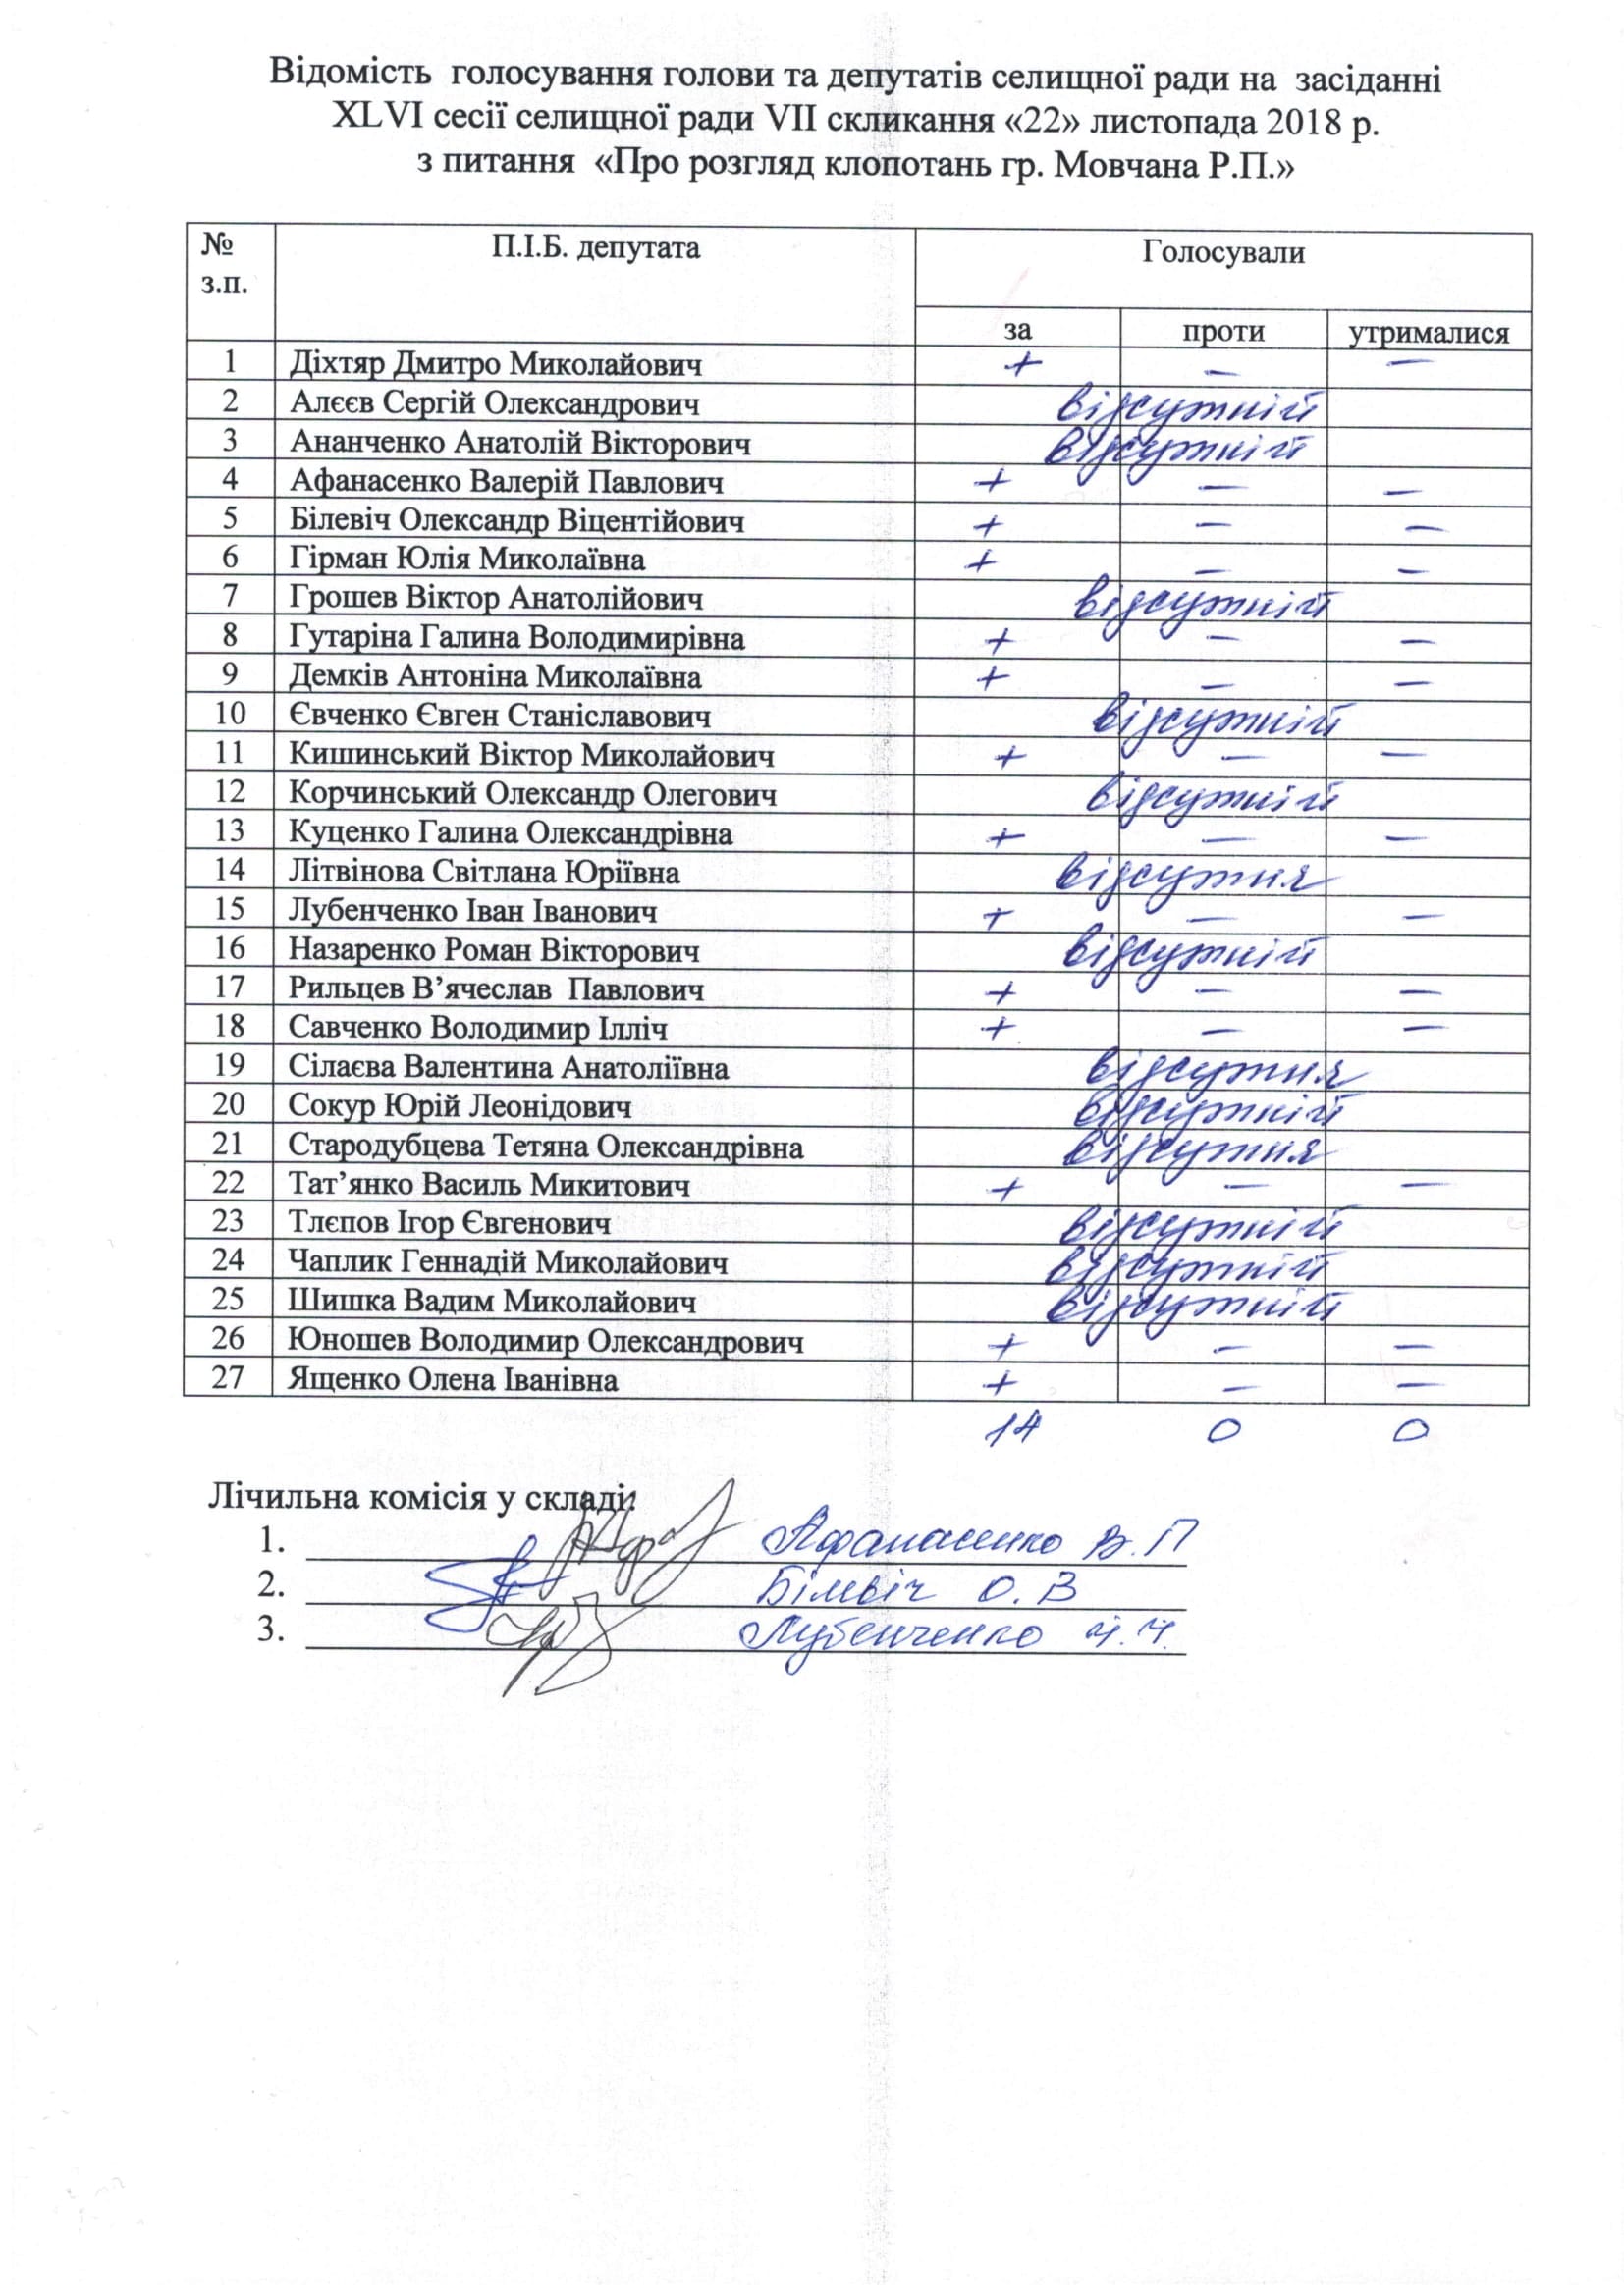 Відомість голосування голови та депутатів селищної ради на засіданні
XLVI сесії селищної ради VII скликання «22» листопада 2018 р.
з питання «Про розгляд клопотань гр. Мовчана Р.П.»
№ з.п. П.І.Б. депутата Голосували
за проти утрималися
1 Діхтяр Дмитро Миколайович + — —
2 Алєєв Сергій Олександрович відсутній
3 Ананченко Анатолій Вікторович відсутній
4 Афанасенко Валерій Павлович + — —
5 Білевіч Олександр Віцентійович + — —
6 Гірман Юлія Миколаївна + — —
7 Грошев Віктор Анатолійович відсутній
8 Гутаріна Галина Володимирівна + — —
9 Демків Антоніна Миколаївна + — —
10 Євченко Євген Станіславович відсутній
11 Кишинський Віктор Миколайович + — —
12 Корчинський Олександр Олегович відсутній
13 Куценко Галина Олександрівна + — —
14 Літвінова Світлана Юріївна відсутня
15 Лубенченко Іван Іванович + — —
16 Назаренко Роман Вікторович відсутній
17 Рильцев В’ячеслав Павлович + — —
18 Савченко Володимир Ілліч + — —
19 Сілаєва Валентина Анатоліївна відсутня
20 Сокур Юрій Леонідович відсутній
21 Стародубцева Тетяна Олександрівна відсутня
22 Тат’янко Василь Микитович + — —
23 Тлєпов Ігор Євгенович відсутній
24 Чаплик Геннадій Миколайович відсутній
25 Шишка Вадим Миколайович відсутній
26 Юношев Володимир Олександрович + — —
27 Ященко Олена Іванівна + — —
14 0 0
Лічильна комісія у складі:
1. Афанасенко В.П
2. О.В
3. Лубенченко І.І.